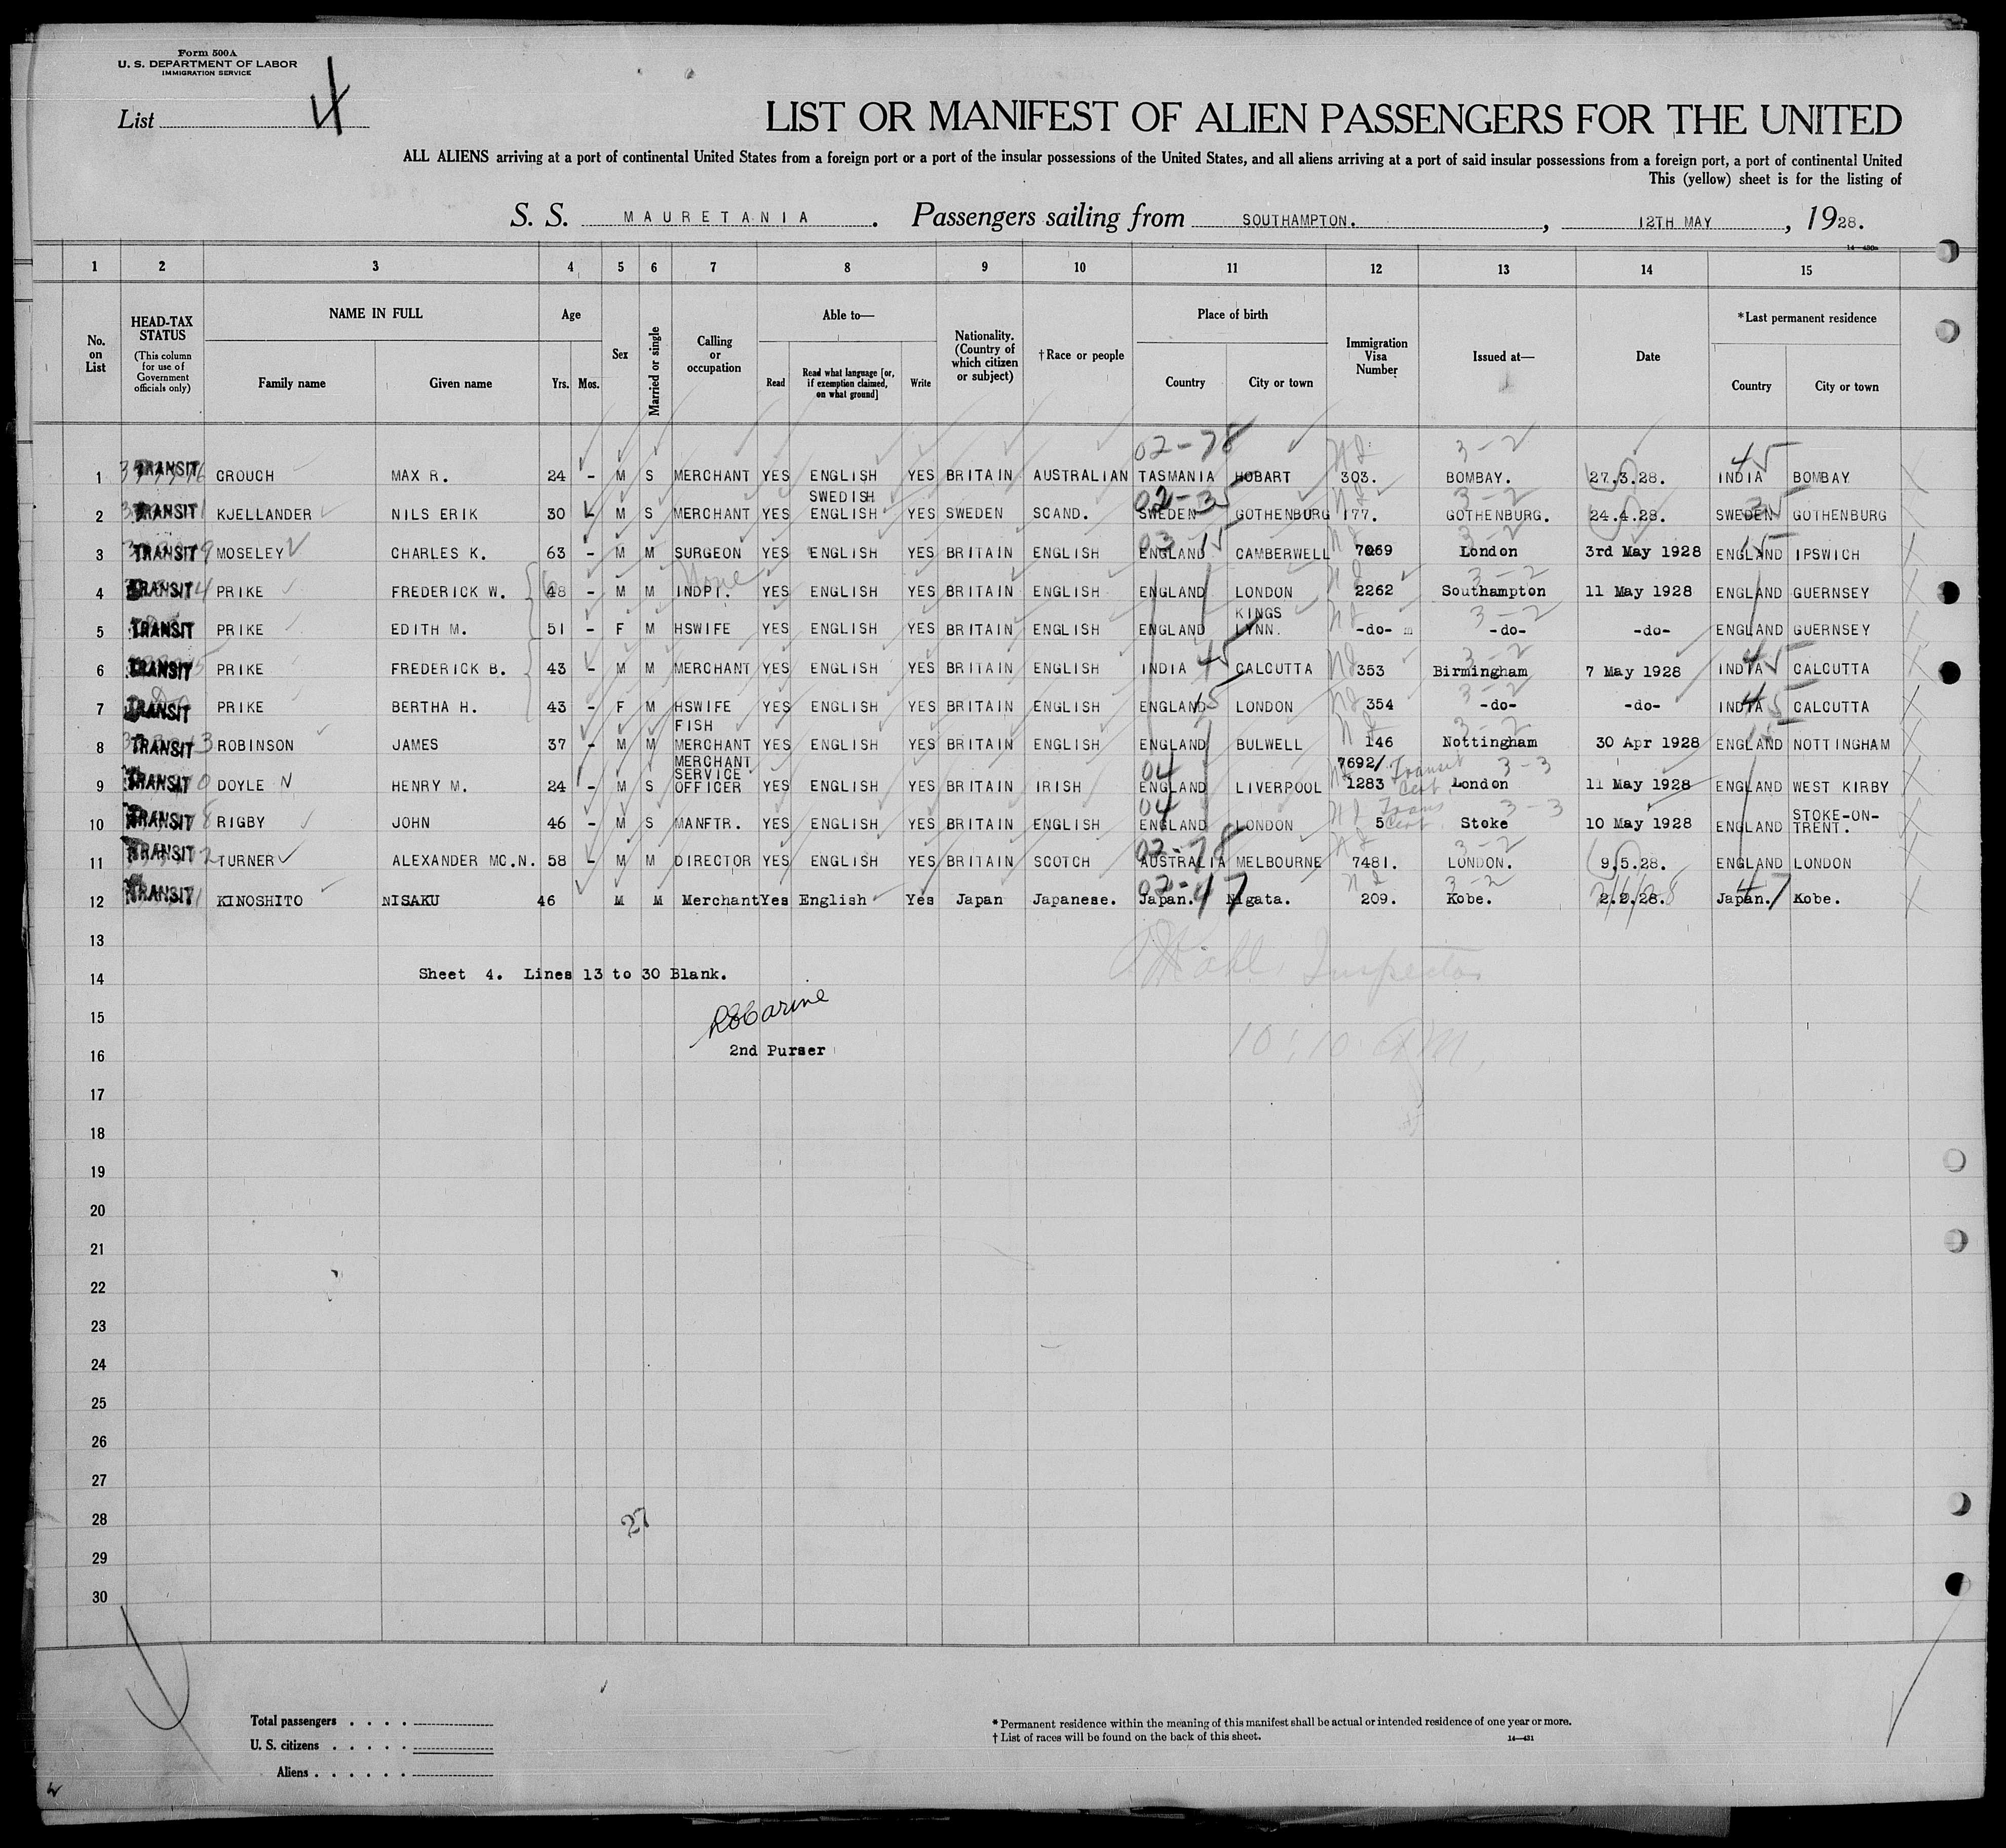 Form 500A
U. S. DEPARTMENT OF LABOR
IMMIGRATION SERVICE
List 4
LIST OR MANIFEST OF ALIEN PASSENGERS FOR THE UNITED
ALL ALIENS arriving at a port of continental United States from a foreign port or a port of the insular possessions of the United States, and all aliens arriving at a port of said insular possessions from a foreign port, a port of continental United
This (yellow) sheet is for the listing of
S. S. MAURETANIA. Passengers sailing from SOUTHAMPTON. , 12TH MAY , 1928.
1 2 3 4 5 6 7 8 9 10 11 12 13 14 15
No. on List
HEAD-TAX STATUS (This column for use of Government officials only)
NAME IN FULL Family name Given name
Age Yrs. Mos.
Sex
Married or single
Calling or occupation
Able to— Read Read what language [or, if exemption claimed, on what ground] Write
Nationality. (Country of which citizen or subject)
† Race or people
Place of birth Country City or town
Immigration Visa Number
Issued at—
Date
*Last permanent residence Country City or town
02-78 3-2 45
1 TRANSIT CROUCH MAX R. 24 - M S MERCHANT YES ENGLISH YES BRITAIN AUSTRALIAN TASMANIA HOBART 303. BOMBAY. 27.3.28. INDIA BOMBAY
SWEDISH 02-35 3-2 35
2 TRANSIT KJELLANDER NILS ERIK 30 - M S MERCHANT YES ENGLISH YES SWEDEN SCAND. SWEDEN GOTHENBURG 177. GOTHENBURG. 24.4.28. SWEDEN GOTHENBURG
03 15 3-2 15
3 TRANSIT MOSELEY CHARLES K. 63 - M M SURGEON YES ENGLISH YES BRITAIN ENGLISH ENGLAND CAMBERWELL 7069 London 3rd May 1928 ENGLAND IPSWICH
None 3-2
4 TRANSIT PRIKE FREDERICK W. 48 - M M INDPT. YES ENGLISH YES BRITAIN ENGLISH ENGLAND LONDON 2262 Southampton 11 May 1928 ENGLAND GUERNSEY
KINGS 3-2
5 TRANSIT PRIKE EDITH M. 51 - F M HSWIFE YES ENGLISH YES BRITAIN ENGLISH ENGLAND LYNN. -do- -do- -do- ENGLAND GUERNSEY
45 3-2 45
6 TRANSIT PRIKE FREDERICK B. 43 - M M MERCHANT YES ENGLISH YES BRITAIN ENGLISH INDIA CALCUTTA 353 Birmingham 7 May 1928 INDIA CALCUTTA
15 3-2 45
7 TRANSIT PRIKE BERTHA H. 43 - F M HSWIFE YES ENGLISH YES BRITAIN ENGLISH ENGLAND LONDON 354 -do- -do- INDIA CALCUTTA
FISH 3-2 15
8 TRANSIT ROBINSON JAMES 37 - M M MERCHANT YES ENGLISH YES BRITAIN ENGLISH ENGLAND BULWELL 146 Nottingham 30 Apr 1928 ENGLAND NOTTINGHAM
MERCHANT 7692/
SERVICE 04 Transit Cert. 3-3
9 TRANSIT DOYLE HENRY M. 24 - M S OFFICER YES ENGLISH YES BRITAIN IRISH ENGLAND LIVERPOOL 1283 London 11 May 1928 ENGLAND WEST KIRBY
04 Trans Cert. 3-3 STOKE-ON-
10 TRANSIT RIGBY JOHN 46 - M S MANFTR. YES ENGLISH YES BRITAIN ENGLISH ENGLAND LONDON 5 Stoke 10 May 1928 ENGLAND TRENT.
02-78 3-2
11 TRANSIT TURNER ALEXANDER MC.N. 58 - M M DIRECTOR YES ENGLISH YES BRITAIN SCOTCH AUSTRALIA MELBOURNE 7481. LONDON. 9.5.28. ENGLAND LONDON
02-47 3-2 47
12 TRANSIT KINOSHITO NISAKU 46 M M Merchant Yes English Yes Japan Japanese. Japan. Nigata. 209. Kobe. 2.2.28. Japan. Kobe.
13
14 Sheet 4. Lines 13 to 30 Blank. Inspector
15
16 2nd Purser 10:10 AM
17
18
19
20
21
22
23
24
25
26
27
28 27
29
30
Total passengers . . . .
U. S. citizens . . . . .
Aliens . . . . . .
* Permanent residence within the meaning of this manifest shall be actual or intended residence of one year or more.
† List of races will be found on the back of this sheet. 14—431